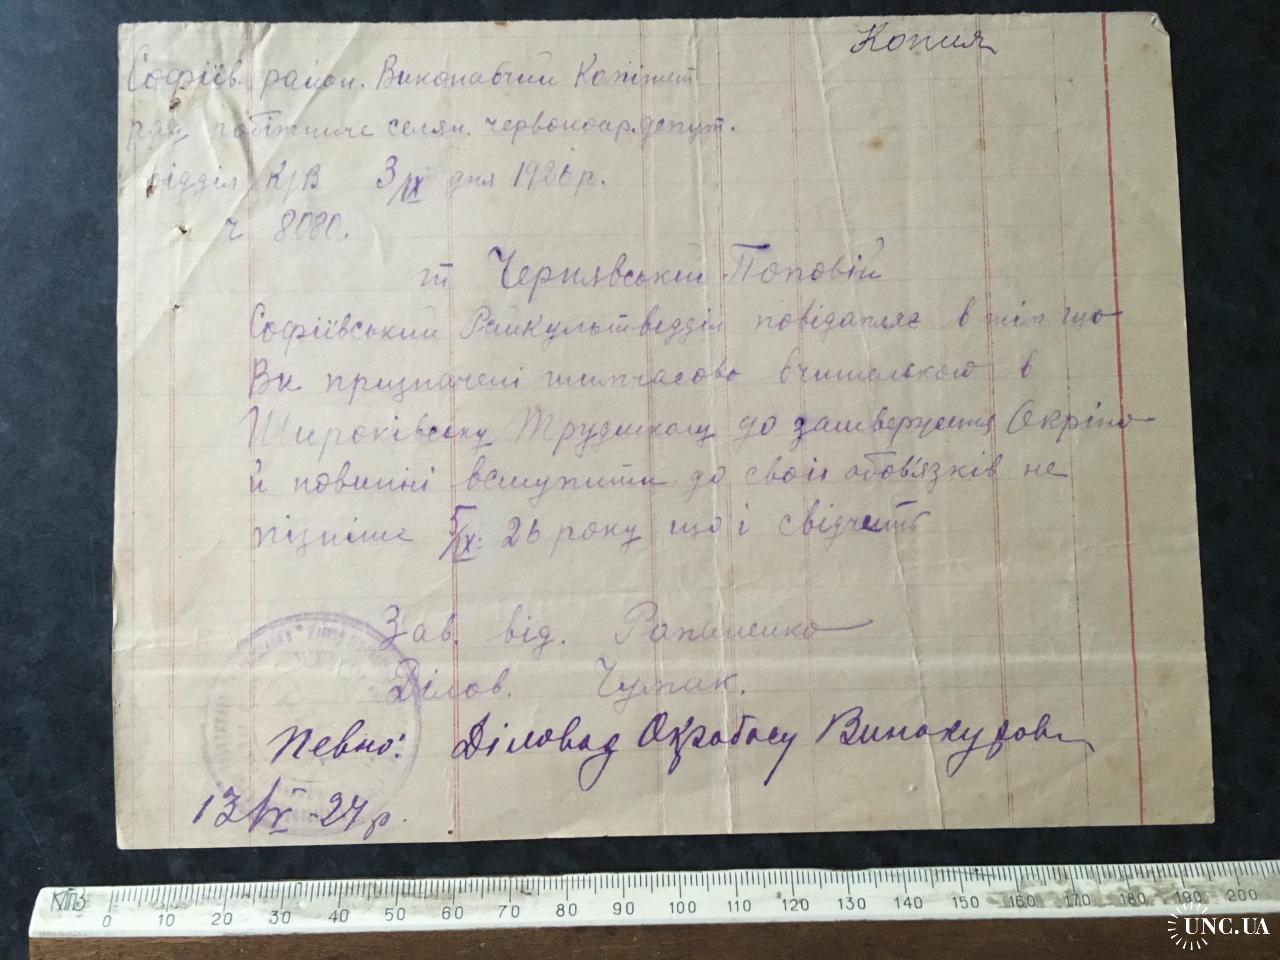 Копия
Софіїв. район. Виконавчий Комітет
рад робітниче селян. червоноар. депут.
відділ К/В 3/IX дня 1926 р.
ч 8080.
т Чернявський-Поповій
Софіївський Райкультвідділ повідамляє в тім що
Ви призначені тимчасово вчителькою в
Широківську Трудшколу до затвердження
й повинні вступити до своїх обов'язків не
пізніше 5/IX-26 року що і свідчить
Зав. від.
Ділов. Чумак.
Певно: Діловод Окрбюсу Винокуров
13/IV-27 р.
КПЗ 0 10 20 30 40 50 60 70 80 90 100 110 120 130 140 150 160 170 180 190 200
UNC.UA